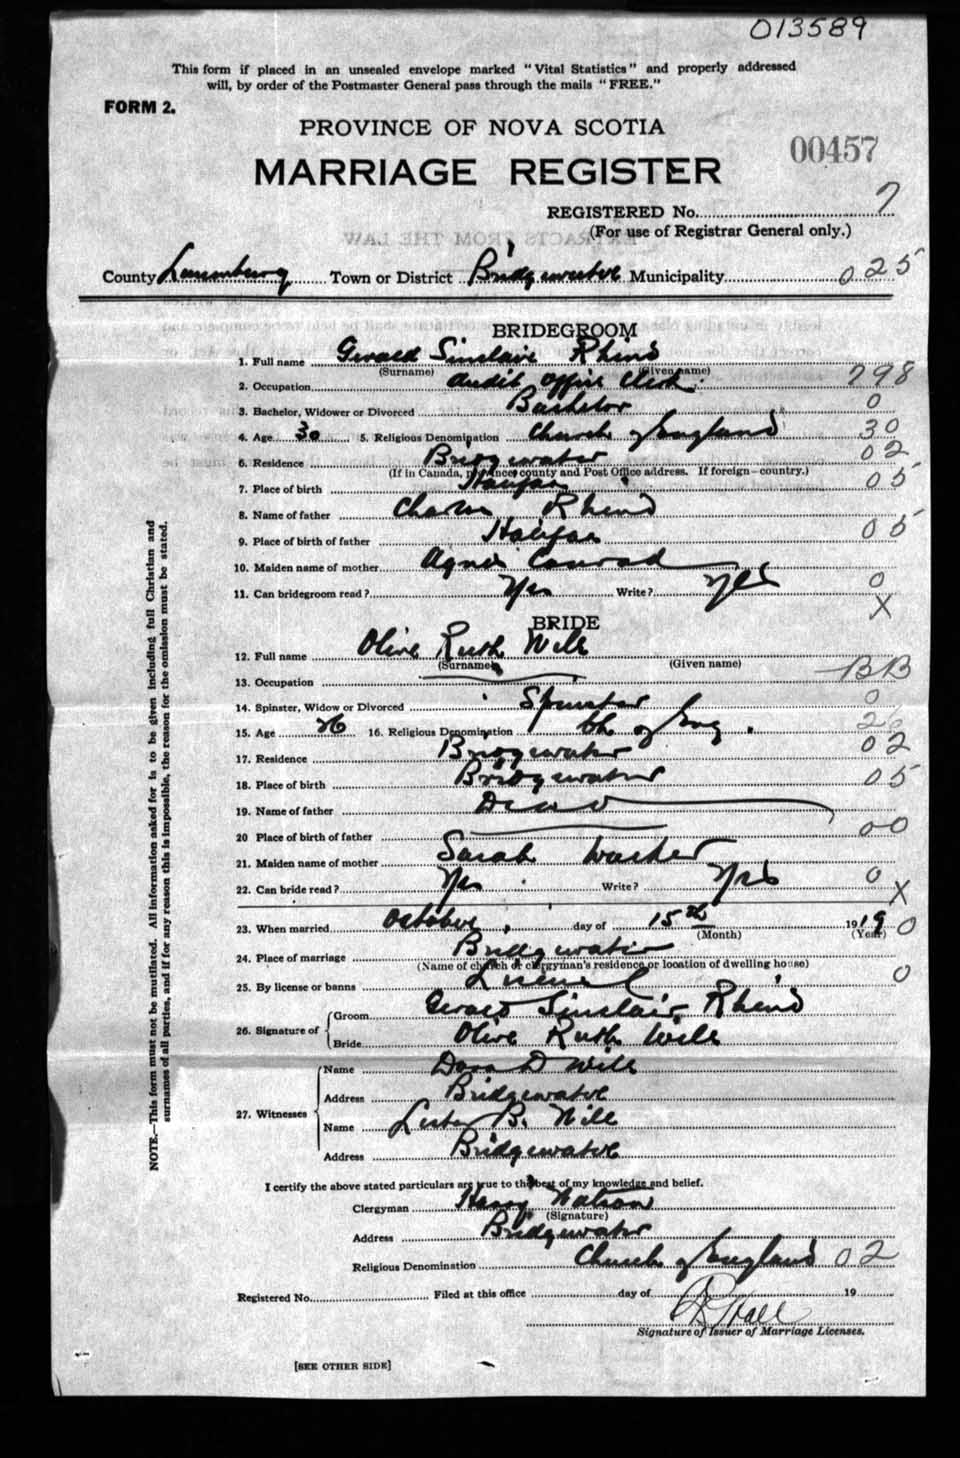 013589
This form if placed in an unsealed envelope marked "Vital Statistics" and properly addressed
will, by order of the Postmaster General pass through the mails "FREE."
FORM 2.
PROVINCE OF NOVA SCOTIA
00457
MARRIAGE REGISTER
REGISTERED No. 7
(For use of Registrar General only.)
EXTRACTS FROM THE LAW
County Lunenburg Town or District Bridgewater Municipality 025
BRIDEGROOM
1. Full name Gerald Sinclair Rhind
(Surname) (Given name)
2. Occupation Audit Office Clerk. 798
3. Bachelor, Widower or Divorced Bachelor 0
4. Age 30 5. Religious Denomination Church of England 30
6. Residence Bridgewater 02
(If in Canada, province county and Post Office address. If foreign—country.)
7. Place of birth Halifax 05
8. Name of father Charles Rhind
9. Place of birth of father Halifax 05
10. Maiden name of mother Agnes Conrad
11. Can bridegroom read? Yes Write? Yes 0
X
BRIDE
12. Full name Olive Ruth Wile
(Surname) (Given name)
13. Occupation BB
14. Spinster, Widow or Divorced Spinster 0
15. Age 26 16. Religious Denomination Ch of Eng. 26
17. Residence Bridgewater 02
18. Place of birth Bridgewater 05
19. Name of father
20 Place of birth of father 00
21. Maiden name of mother Sarah
22. Can bride read? Yes Write? Yes 0
X
23. When married October day of 15th 1919 0
(Month) (Year)
24. Place of marriage Bridgewater
(Name of church or clergyman's residence or location of dwelling house)
25. By license or banns License 0
26. Signature of Groom Gerald Sinclair Rhind
Bride Olive Ruth Wile
27. Witnesses
Name D Wile
Address Bridgewater
Name B. Wile
Address Bridgewater
I certify the above stated particulars are true to the best of my knowledge and belief.
Clergyman Harry Watson
(Signature)
Address Bridgewater
Religious Denomination Church of England 02
Registered No. Filed at this office day of 19
Signature of Issuer of Marriage Licenses.
[SEE OTHER SIDE]
NOTE.—This form must not be mutilated. All information asked for is to be given including full Christian and
surnames of all parties, and if for any reason this is impossible, the reason for the omission must be stated.